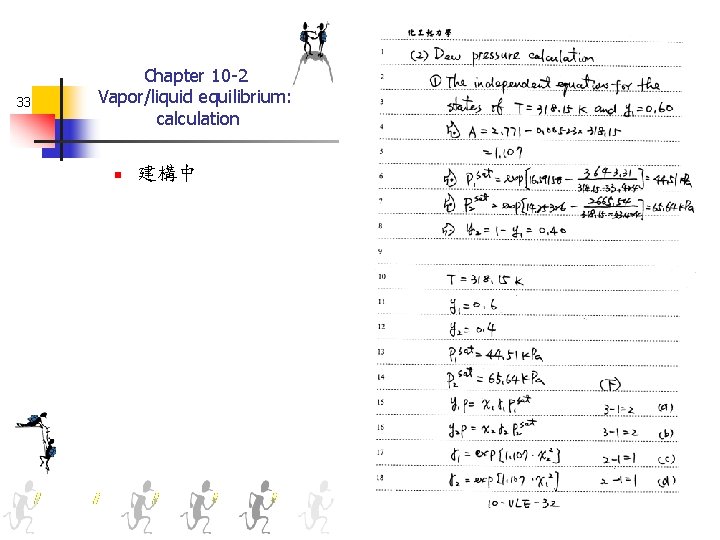 33
Chapter 10-2
Vapor/liquid equilibrium:
calculation
建構中
化工熱力學
1 (2) Dew pressure calculation
2 ① The independent equations for the
3 states of T=318.15 K and y₁=0.60
4 A = 2.771 - 0.00523 x 318.15
5 =1.107
6 P₁ˢᵃᵗ = exp[16.59158 - 3643.31 / 318.15-33.424] = 44.51 kPa
7 P₂ˢᵃᵗ = exp[14.25326 - 2665.54 / 318.15-53.424] = 65.64 kPa
8 y₂ = 1 - y₁ = 0.40
9
10 T = 318.15 K
11 y₁ = 0.6
12 y₂ = 0.4
13 P₁ˢᵃᵗ = 44.51 kPa
14 P₂ˢᵃᵗ = 65.64 kPa (F)
15 y₁P = x₁γ₁P₁ˢᵃᵗ 3-1=2 (a)
16 y₂P = x₂γ₂P₂ˢᵃᵗ 3-1=2 (b)
17 γ₁ = exp[1.107·x₂²] 2-1=1 (c)
18 γ₂ = exp[1.107·x₁²] 2-1=1 (d)
10-VLE-32